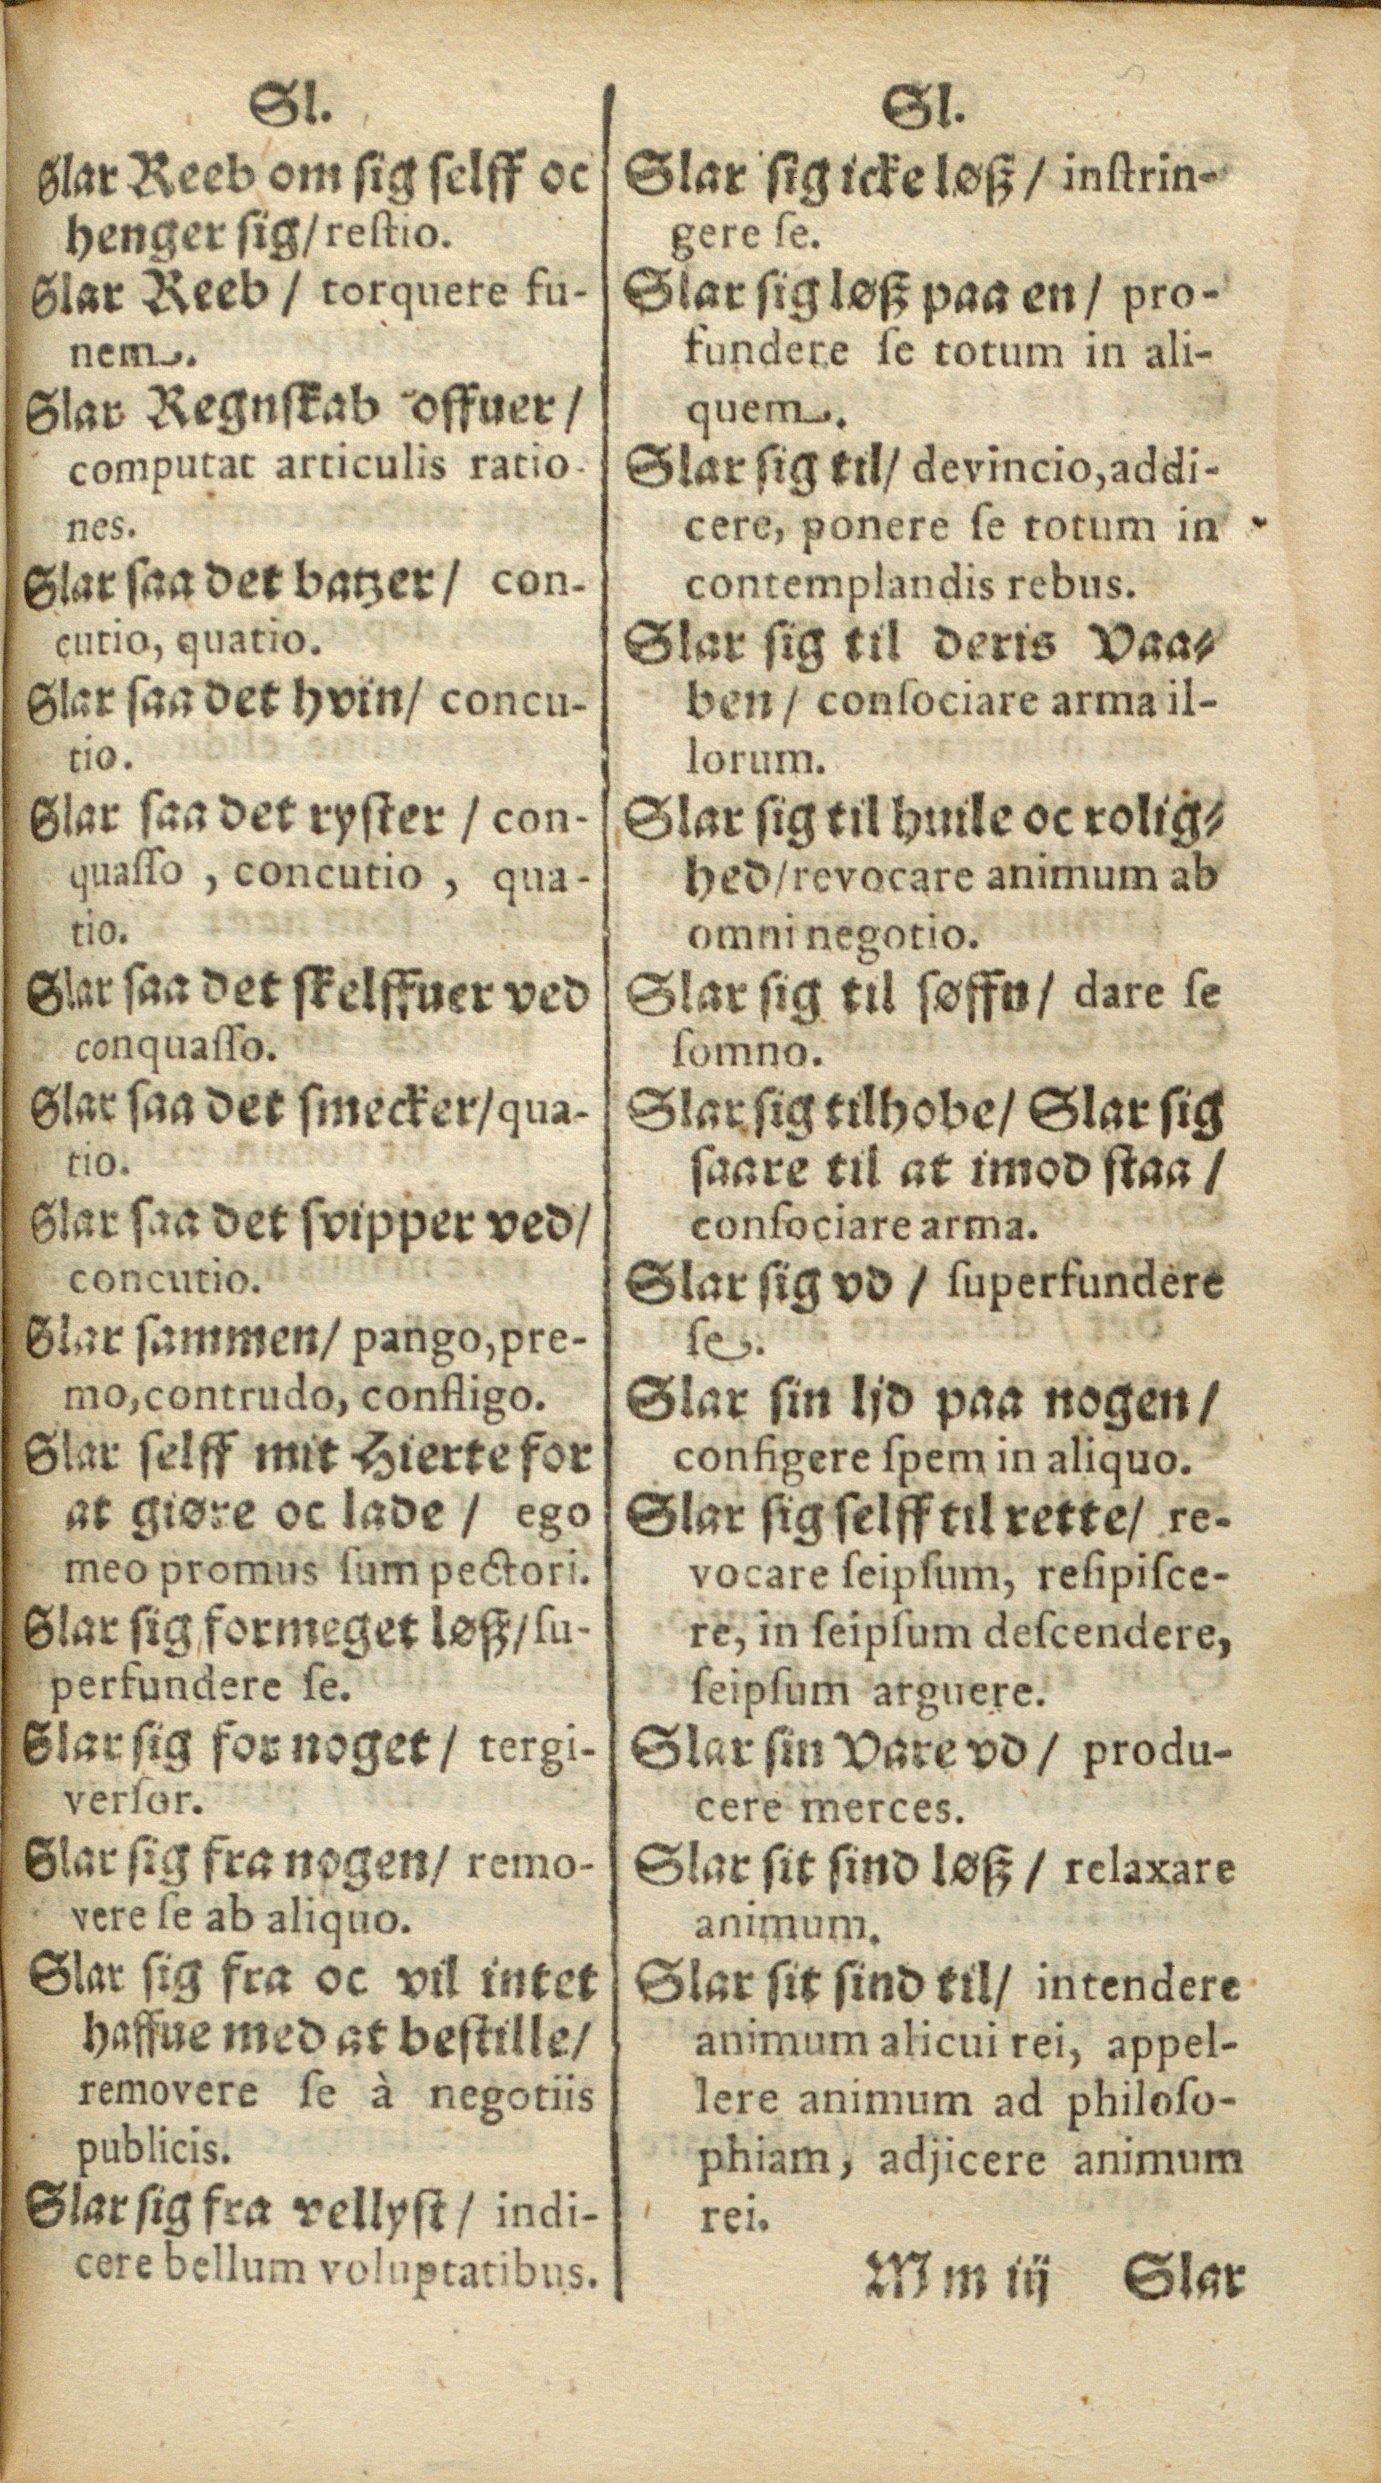 Sl.
Slar Reeb om sig selff oc
henger sig/ reſtio.
Slar Reeb / torquere fu-
nem.
Slar Regnſkab offuer /
computat articulis ratio-
nes.
Slar ſaa det batzer / con-
cutio, quatio.
Slar ſaa det hvin/ concu-
tio.
Slar ſaa det ryſter / con-
quaſſo , concutio , qua-
tio.
Slar ſaa det ſkelffuer ved
conquaſſo.
Slar ſaa det ſmecker/ qua-
tio.
Slar ſaa det ſvipper ved/
concutio.
Slar ſammen/ pango, pre-
mo, contrudo, confligo.
Slar ſelff mit Hierte for
at giøre oc lade / ego
meo promus ſum pectori.
Slar ſig formeget løß/ ſu-
perfundere ſe.
Slar ſig for noget / tergi-
verſor.
Slar ſig fra nogen/ remo-
vere ſe ab aliquo.
Slar ſig fra oc vil intet
haffue med at beſtille/
removere ſe à negotiis
publicis.
Slar ſig fra vellyſt / indi-
cere bellum voluptatibus.
Sl.
Slar ſig icke løß / inſtrin-
gere ſe.
Slar ſig løß paa en / pro-
fundere ſe totum in ali-
quem.
Slar ſig til/ devincio, addi-
cere, ponere ſe totum in
contemplandis rebus.
Slar ſig til deris Vaa-
ben / conſociare arma il-
lorum.
Slar ſig til huile oc rolig-
hed/ revocare animum ab
omni negotio.
Slar ſig til ſøffn / dare ſe
ſomno.
Slar ſig tilhobe/ Slar ſig
ſaare til at imod ſtaa /
conſociare arma.
Slar ſig vd / ſuperfundere
ſe.
Slar ſin lid paa nogen /
configere ſpem in aliquo.
Slar ſig ſelff til rette/ re-
vocare ſeipſum, reſipiſce-
re, in ſeipſum deſcendere,
ſeipſum arguere.
Slar ſin Vare vd / produ-
cere merces.
Slar ſit ſind løß / relaxare
animum.
Slar ſit ſind til/ intendere
animum alicui rei, appel-
lere animum ad philoſo-
phiam, adjicere animum
rei.
M m iij Slar